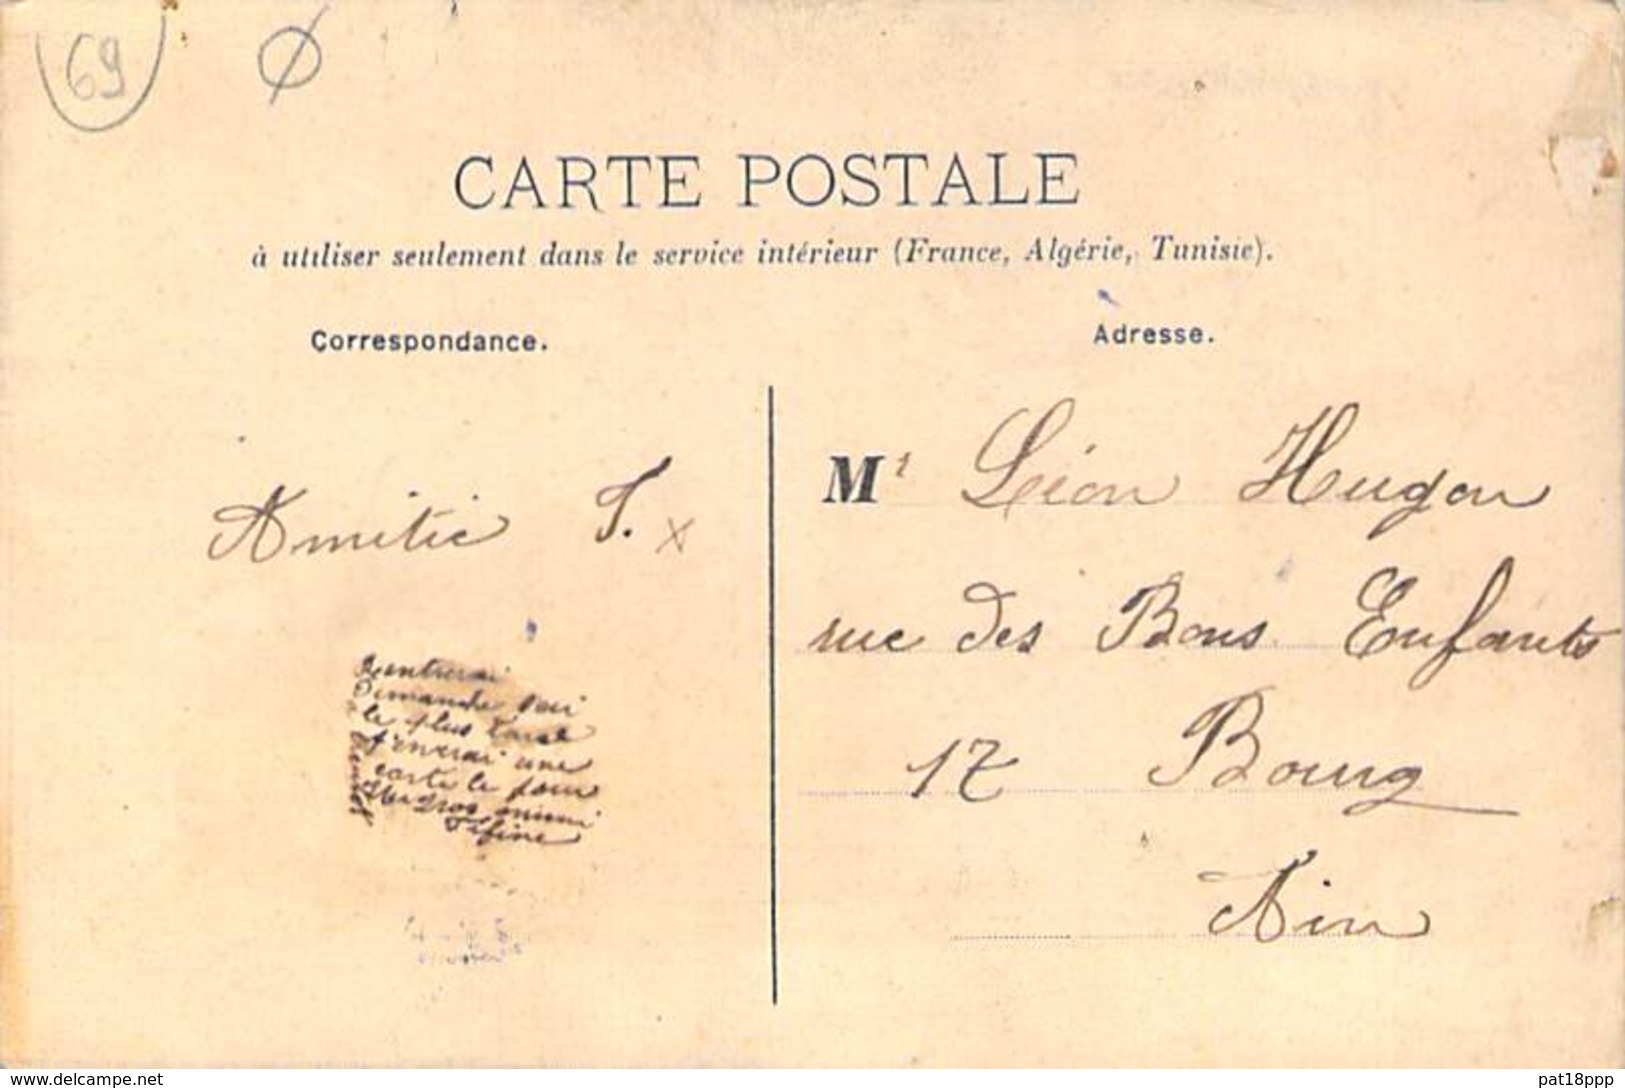 69
CARTE POSTALE
à utiliser seulement dans le service intérieur (France, Algérie, Tunisie).
Correspondance.
Adresse.
Amitié T. x
Rentrerai
Dimanche soir
le plus tard
j'enverai une
carte le jour
Gros mimi
Fifine
Mr Léon Hugon
rue des Bons Enfants
17 Bourg
Ain
www.delcampe.net
pat18ppp